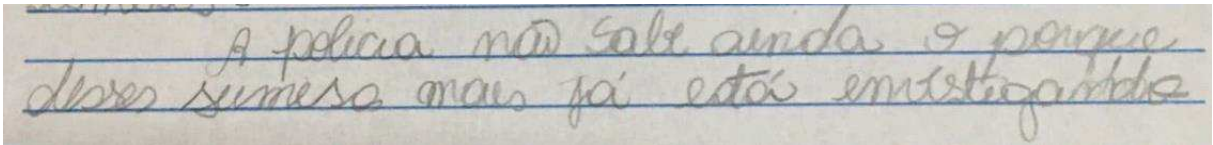 A policia não sabe ainda o porque
desses sumiso mais já está envistigando